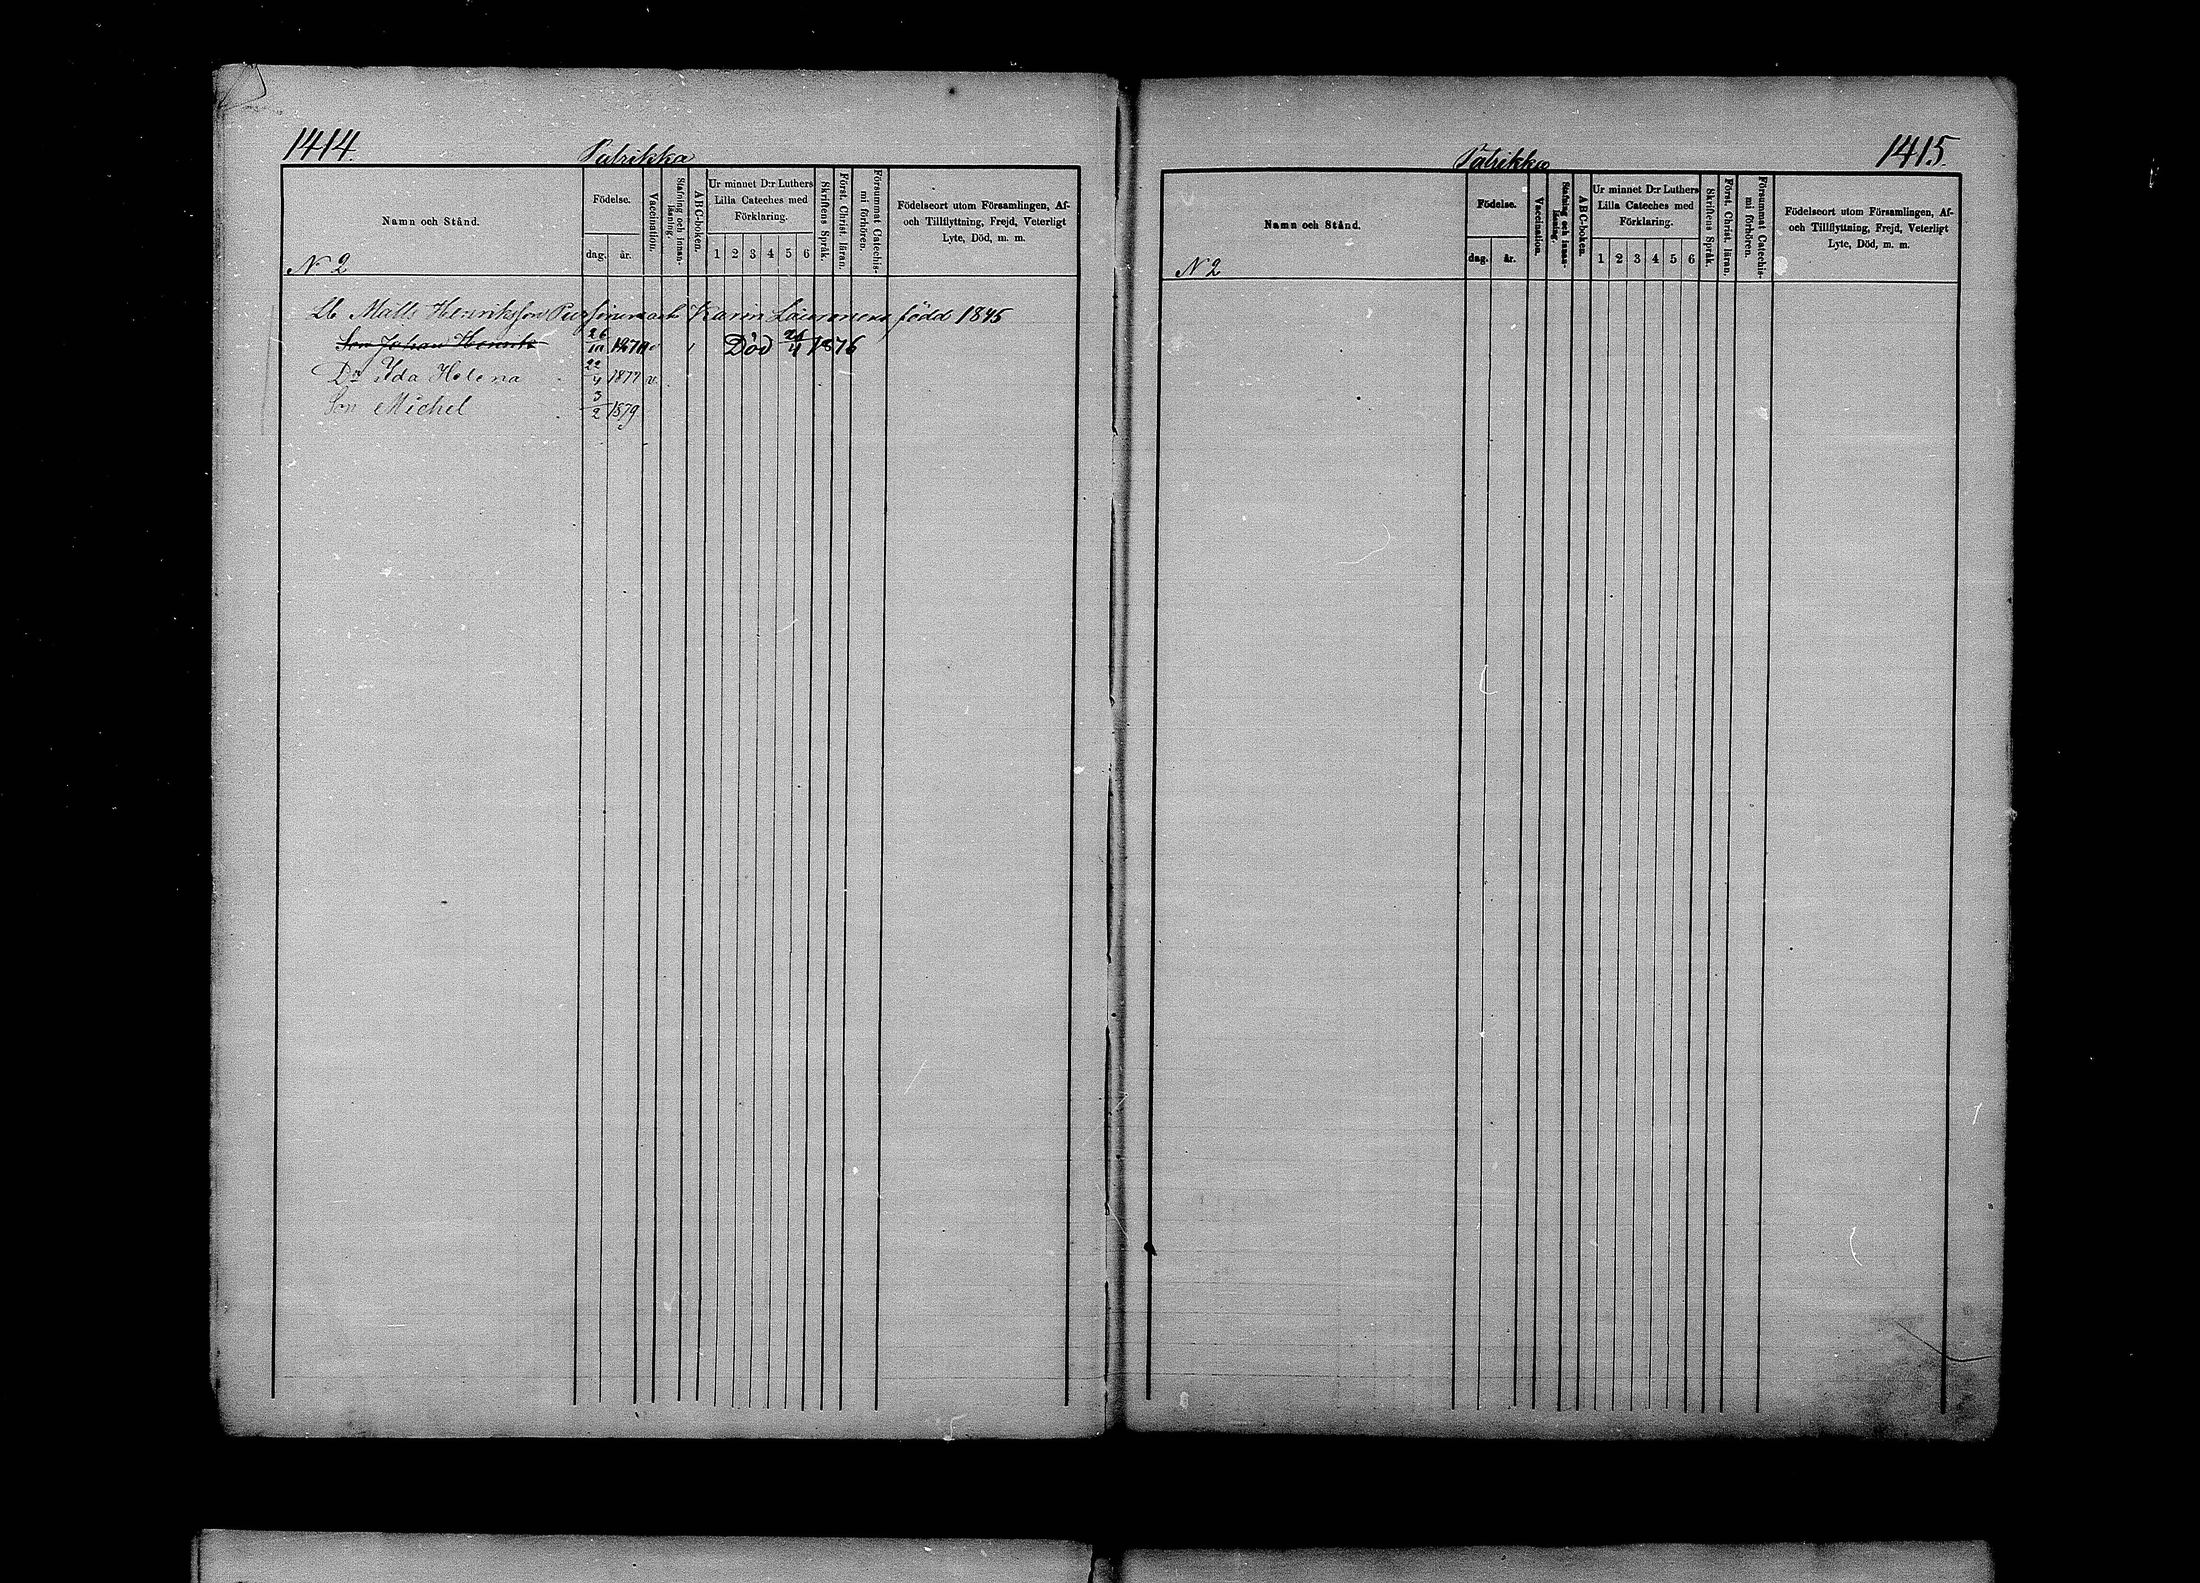 1414.
Patrikka
Namn och Stånd.
N 2
Födelse.
dag. år.
Vaccination.
Stafning och innan-läsning.
ABC-boken.
Ur minnet D:r Luthers Lilla Cateches med Förklaring.
1 2 3 4 5 6
Skriftens Språk.
Först. Christ. läran.
Försummat Catechis-mi förhören.
Födelseort utom Församlingen, Af- och Tillflyttning, Frejd, Veterligt Lyte, Död, m. m.
Matts Henriksson och Karin född 1845
Son Johan Henrik 26/10 v Död 1876
Dr Ida Helena 22/4 1877 v.
Son Michel 3/2 1879
1415.
Patrikka
Namn och Stånd.
N 2
Födelse.
dag. år.
Vaccination.
Stafning och innan-läsning.
ABC-boken.
Ur minnet D:r Luthers Lilla Cateches med Förklaring.
1 2 3 4 5 6
Skriftens Språk.
Först. Christ. läran.
Försummat Catechis-mi förhören.
Födelseort utom Församlingen, Af- och Tillflyttning, Frejd, Veterligt Lyte, Död, m. m.